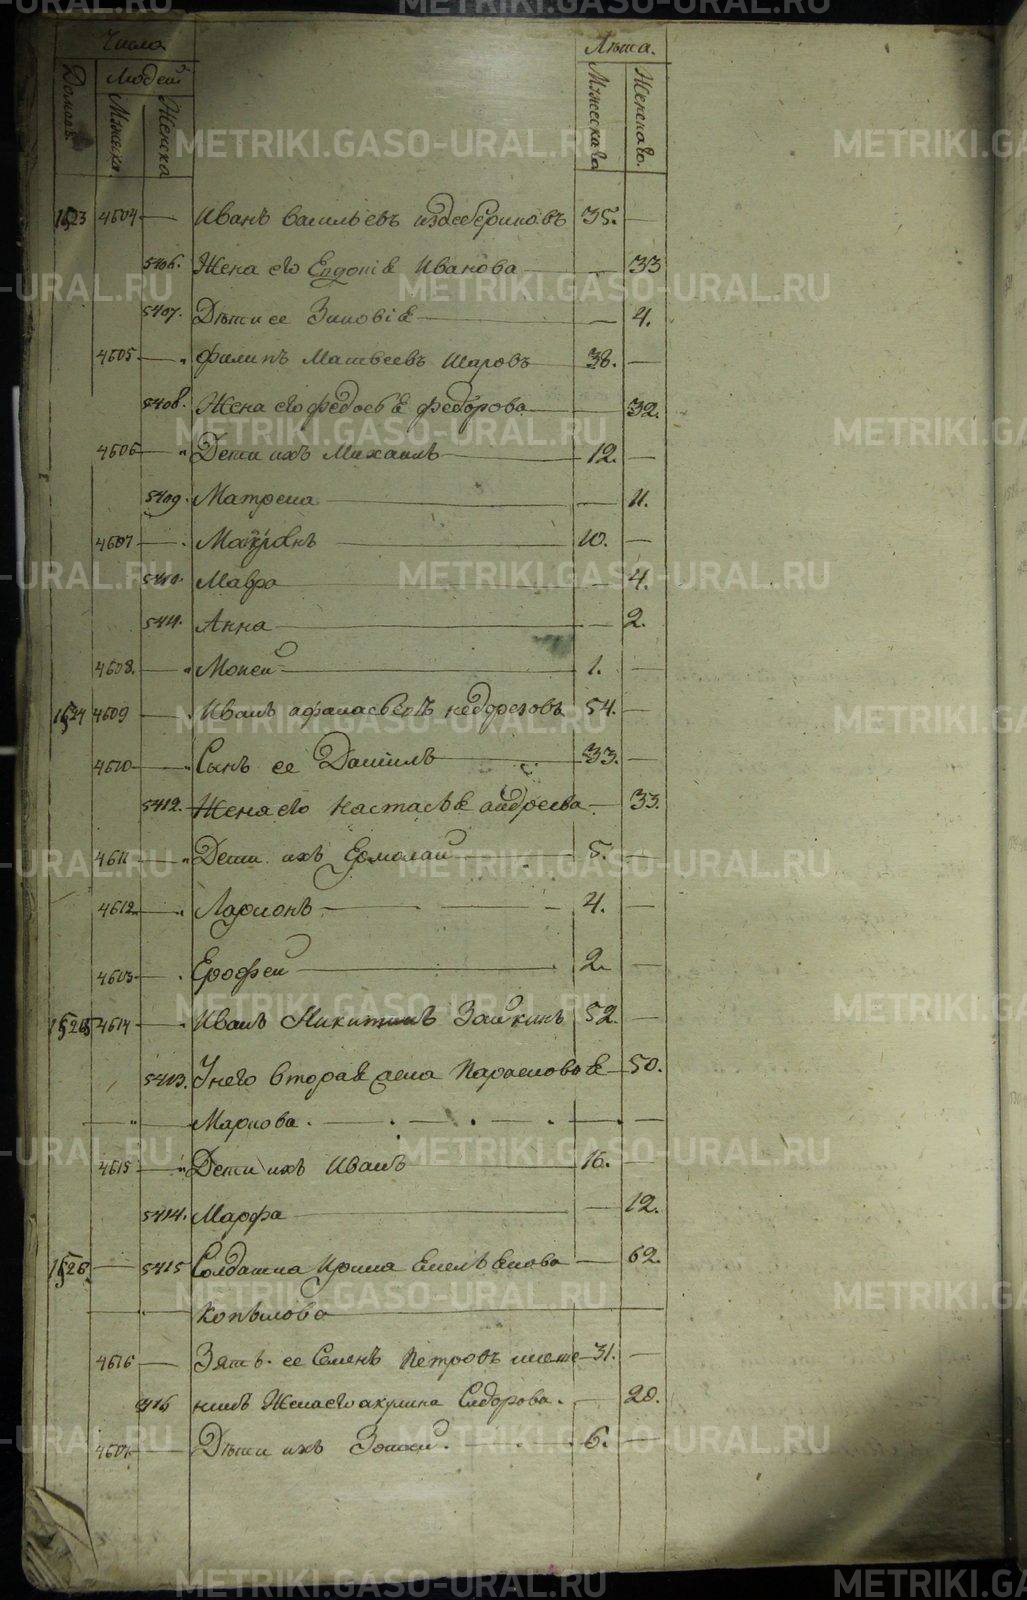 Числа
Лѣта.
Домовъ
Людей
Мужска
Женска
Мужескаго
Женскаго.
1523 4604 — Иванъ Васильевъ 35. —
5406. Жена его Евдокія Иванова — 33
5407. Дѣти ее Зиновія — 4.
4605 — Филипъ Матвеевъ Шаровъ 38. —
5408. Жена его Федосья Федорова — 32.
4606 — Дети ихъ Михаилъ — 12. —
5409. Матрена — 11.
4607 — 10. —
5410. Мавра — 4.
5411. Анна — 2.
4608. — Мокей — 1. —
1524 4609 — Иванъ Афанасьевъ Недорезовъ 54. —
4610 — Сынъ ее Данилъ — 33. —
5412. Жена его Настасья Андреева — 33.
4611 — Дети ихъ Ермолай — 5. —
4612 — Ларионъ — 4. —
4613 — Ерофей — 2. —
1525 4614 — Иванъ Никитинъ Зайкинъ 52 —
5413. У него вторая жена Парасковья — 50.
Маркова. —
4615 — Дети ихъ Иванъ 16. —
5414. Марфа — 12.
1526. — 5415 Солдатка Ирина Емельянова — 62.
Копылова —
4616 — Зять ее Семенъ Петровъ 31. —
5416 Жена его Акулина Сидорова. — 20.
4617 — Дѣти ихъ 6. —
METRIKI.GASO-URAL.RU